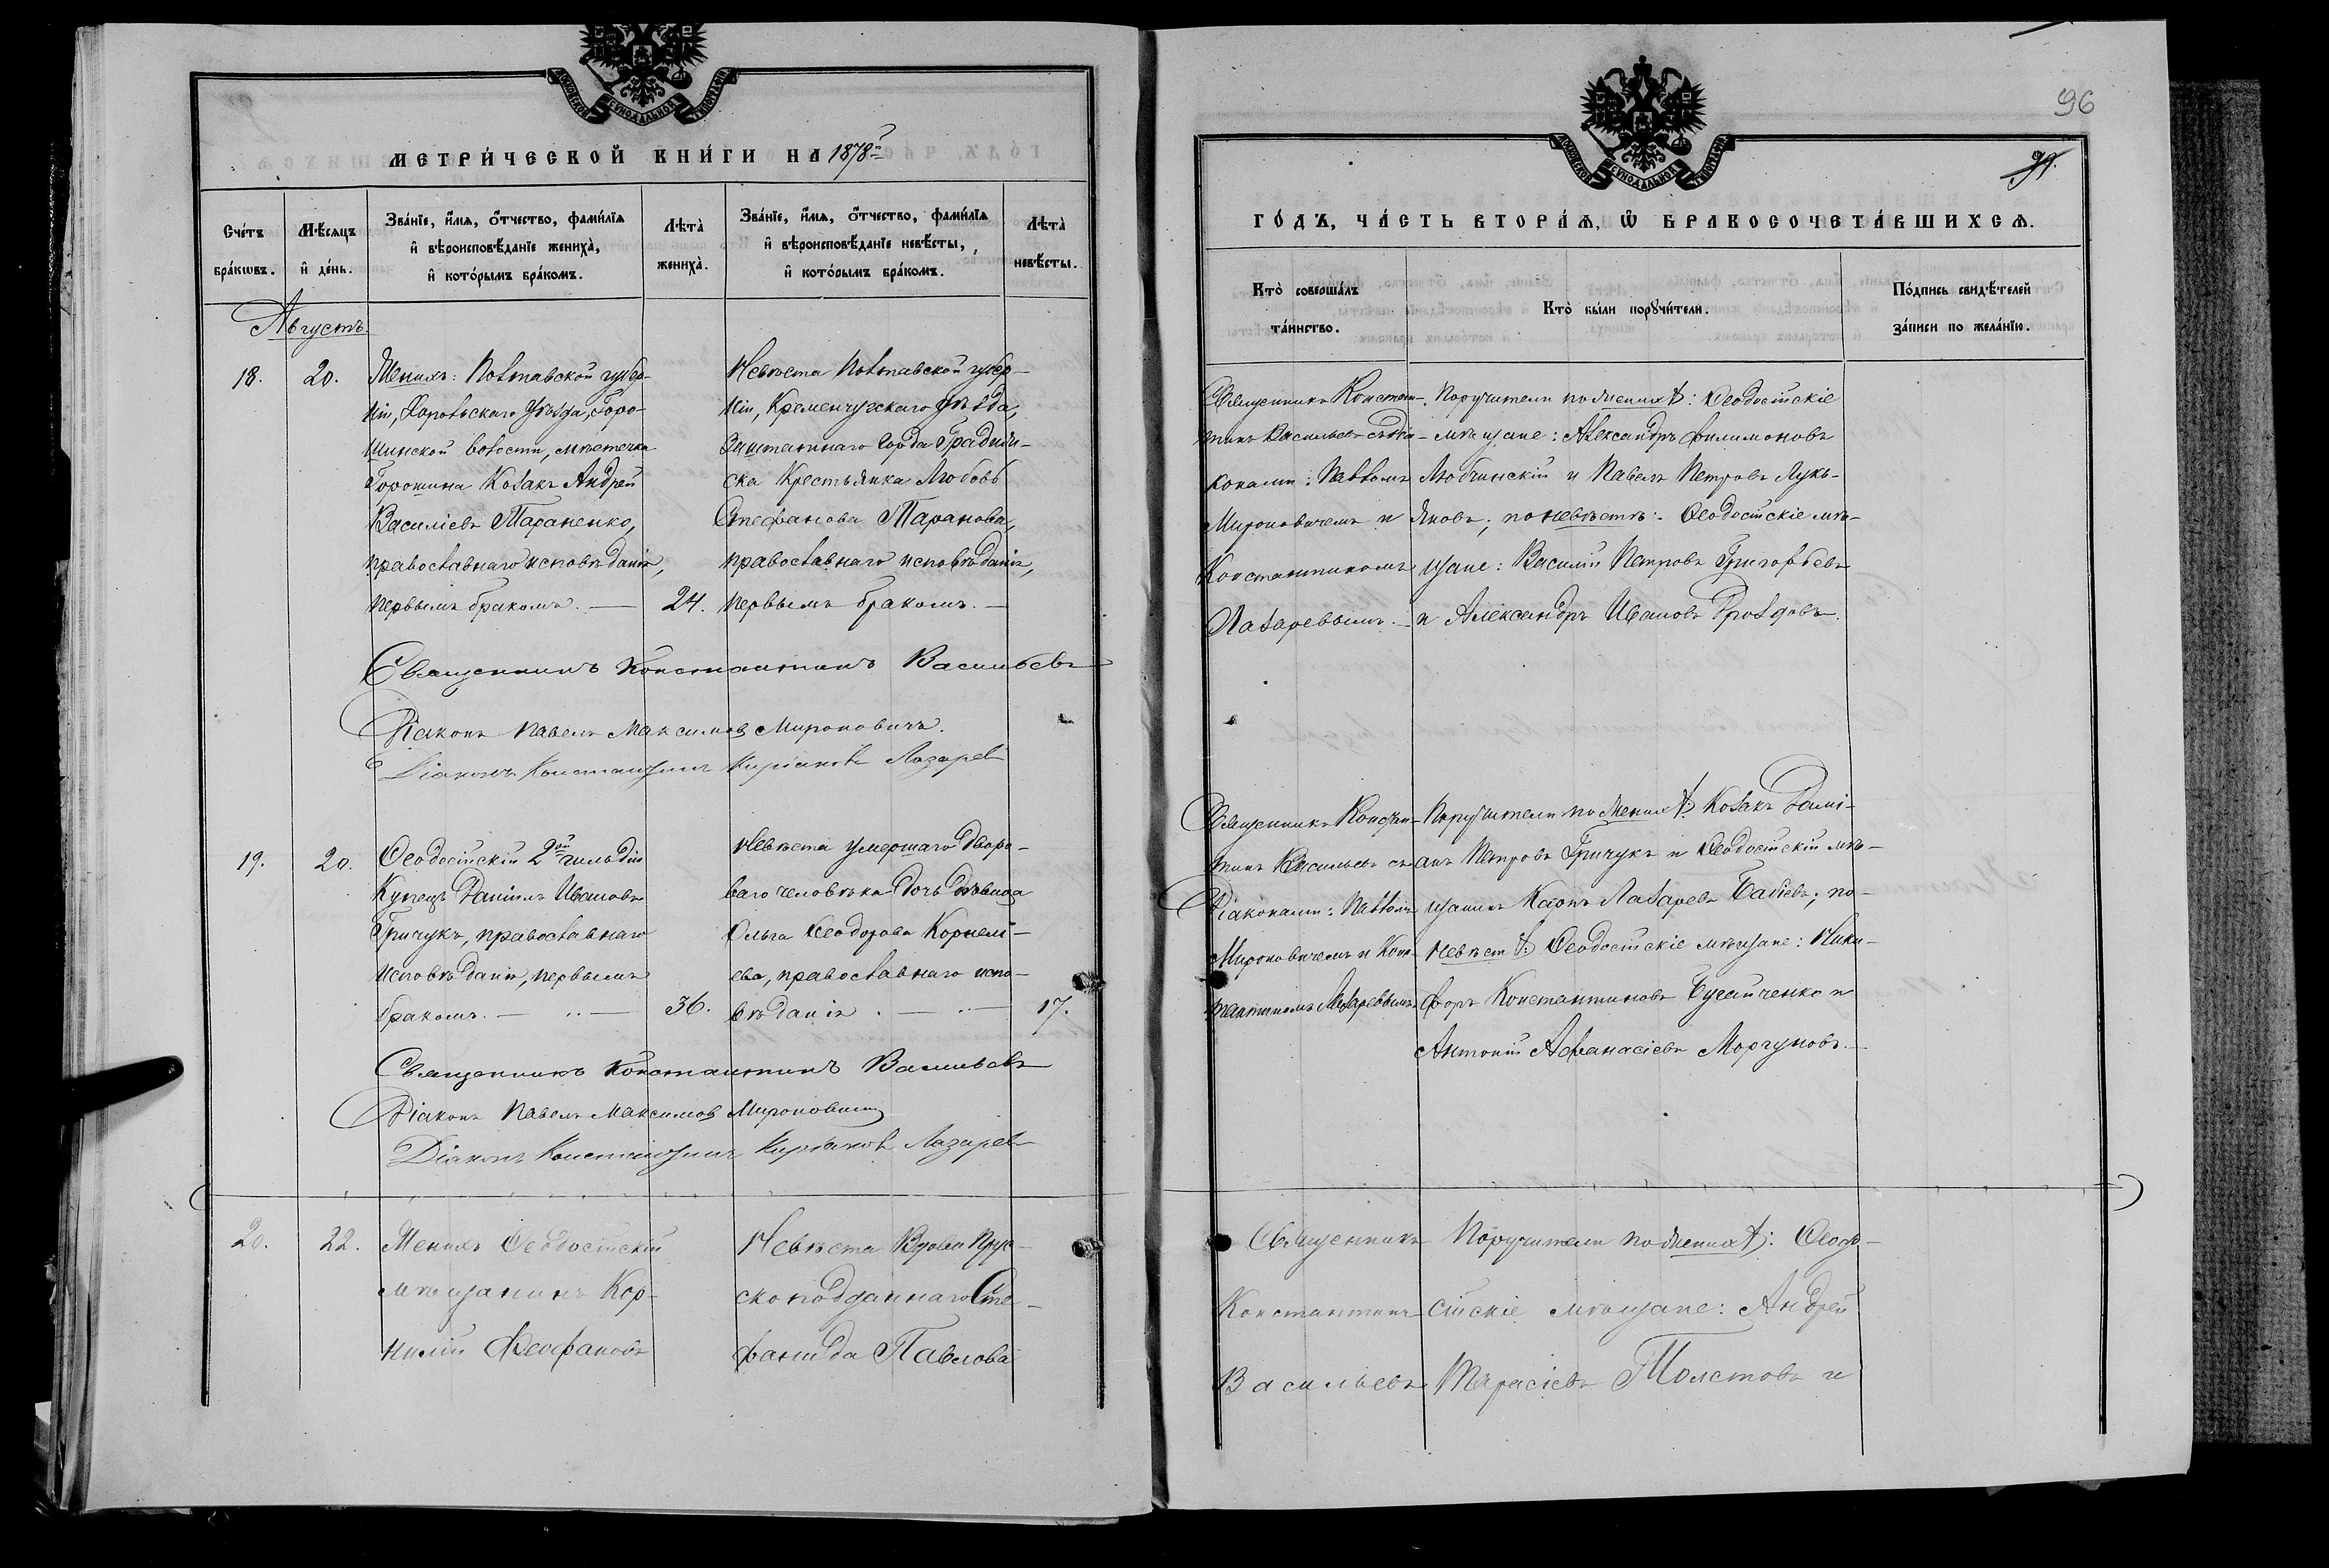 МОСКОВСКОЙ СѴНОДАЛЬНОЙ ТИПОГРАФІИ
МЕТРИ́ЧЕСКОЙ КНИ́ГИ НА 1878й
Сче́тъ бра́кѡвъ.
Мѣ́сяцъ и҆ де́нь.
Зва́нїе, и҆́мѧ, ѻ҆́тчество, фами́лїѧ
и҆ вѣроисповѣ́данїе жениха̀,
и҆ кото́рымъ бра́комъ.
Лѣта̀ жениха̀.
Зва́нїе, и҆́мѧ, ѻ҆́тчество, фами́лїѧ
и҆ вѣроисповѣ́данїе невѣ́сты,
и҆ кото́рымъ бра́комъ.
Лѣта̀ невѣ́сты.
Августъ.
18.
20.
Женихъ: Полтавской губер-
ніи, Хорольскаго уѣзда, Горо-
шинской волости, мѣстечка
Горошина Козакъ Андрей
Василіевъ Тараненко,
православнаго исповѣданія,
первымъ бракомъ. —
24.
Невѣста Полтавской губер-
ніи, Кременчугскаго уѣзда,
Заштатнаго города Градиж-
ска Крестьянка Любовь
Стефанова Таранова,
православнаго исповѣданія,
первымъ бракомъ. —
Священникъ Константинъ Васильевъ
Діаконъ Павелъ Максимов Мироновичъ.
Діаконъ Константинъ Киріаковъ Лазарев
19.
20.
Ѳеодосійскій 2ой гильдіи
Купецъ Даніилъ Ивановъ
Гричукъ, православнаго
исповѣданія, первымъ
бракомъ. —
36.
Невѣста умершаго дворо-
ваго человѣка дочь дѣвица
Ольга Ѳеодорова Корнелі-
ева, православнаго испо-
вѣданія. —
17.
Священникъ Константинъ Васильевъ
Діаконъ Павелъ Максимов Мироновичъ
Діаконъ Константинъ Киріаковъ Лазарев
20.
22.
Женихъ Ѳеодосійскій
мѣщанинъ Кор-
нилій Ѳеофановъ
Невѣста Вдова Прус-
скоподданнаго Сте-
фанида Павлова
96
МОСКОВСКОЙ СѴНОДАЛЬНОЙ ТИПОГРАФІИ
ГО́ДЪ, ЧА́СТЬ ВТОРА́Ѧ, Ѽ БРАКОСОЧЕТА́ВШИХСѦ.
Кто̀ соверша́лъ та́инство.
Кто̀ бы́ли порꙋчи́тели.
По́дпись свидѣ́телей за́писи по жела́нїю.
Священникъ Констан-
тинъ Васильевъ съ діа-
конами: Павломъ
Мироновичемъ и
Константиномъ
Лазаревымъ. —
Поручители по женихѣ: Ѳеодосійскіе
мѣщане: Александръ Филимоновъ
Любчинскій и Павелъ Петровъ Лукь-
яновъ; по невѣстѣ: Ѳеодосійскіе мѣ-
щане: Василій Петровъ Григорьевъ
и Александръ Ивановъ Дроздовъ.
Священникъ Констан-
тинъ Васильевъ съ
Діаконами: Павломъ
Мироновичемъ и Конс-
тантиномъ Лазаревымъ.
Поручители по женихѣ: Козакъ Дамі-
анъ Петровъ Гричукъ и Ѳеодосійскій мѣ-
щанинъ Карпъ Лазаревъ Бабіевъ; по
невѣстѣ: Ѳеодосійскіе мѣщане: Ники-
форъ Константиновъ Бугайченко и
Антоній Аѳанасіевъ Моргуновъ. —
Священникъ
Константинъ
Васильевъ
Поручители по женихѣ: Ѳеодо-
сійскіе мѣщане: Андрей
Тарасіевъ Толстовъ и